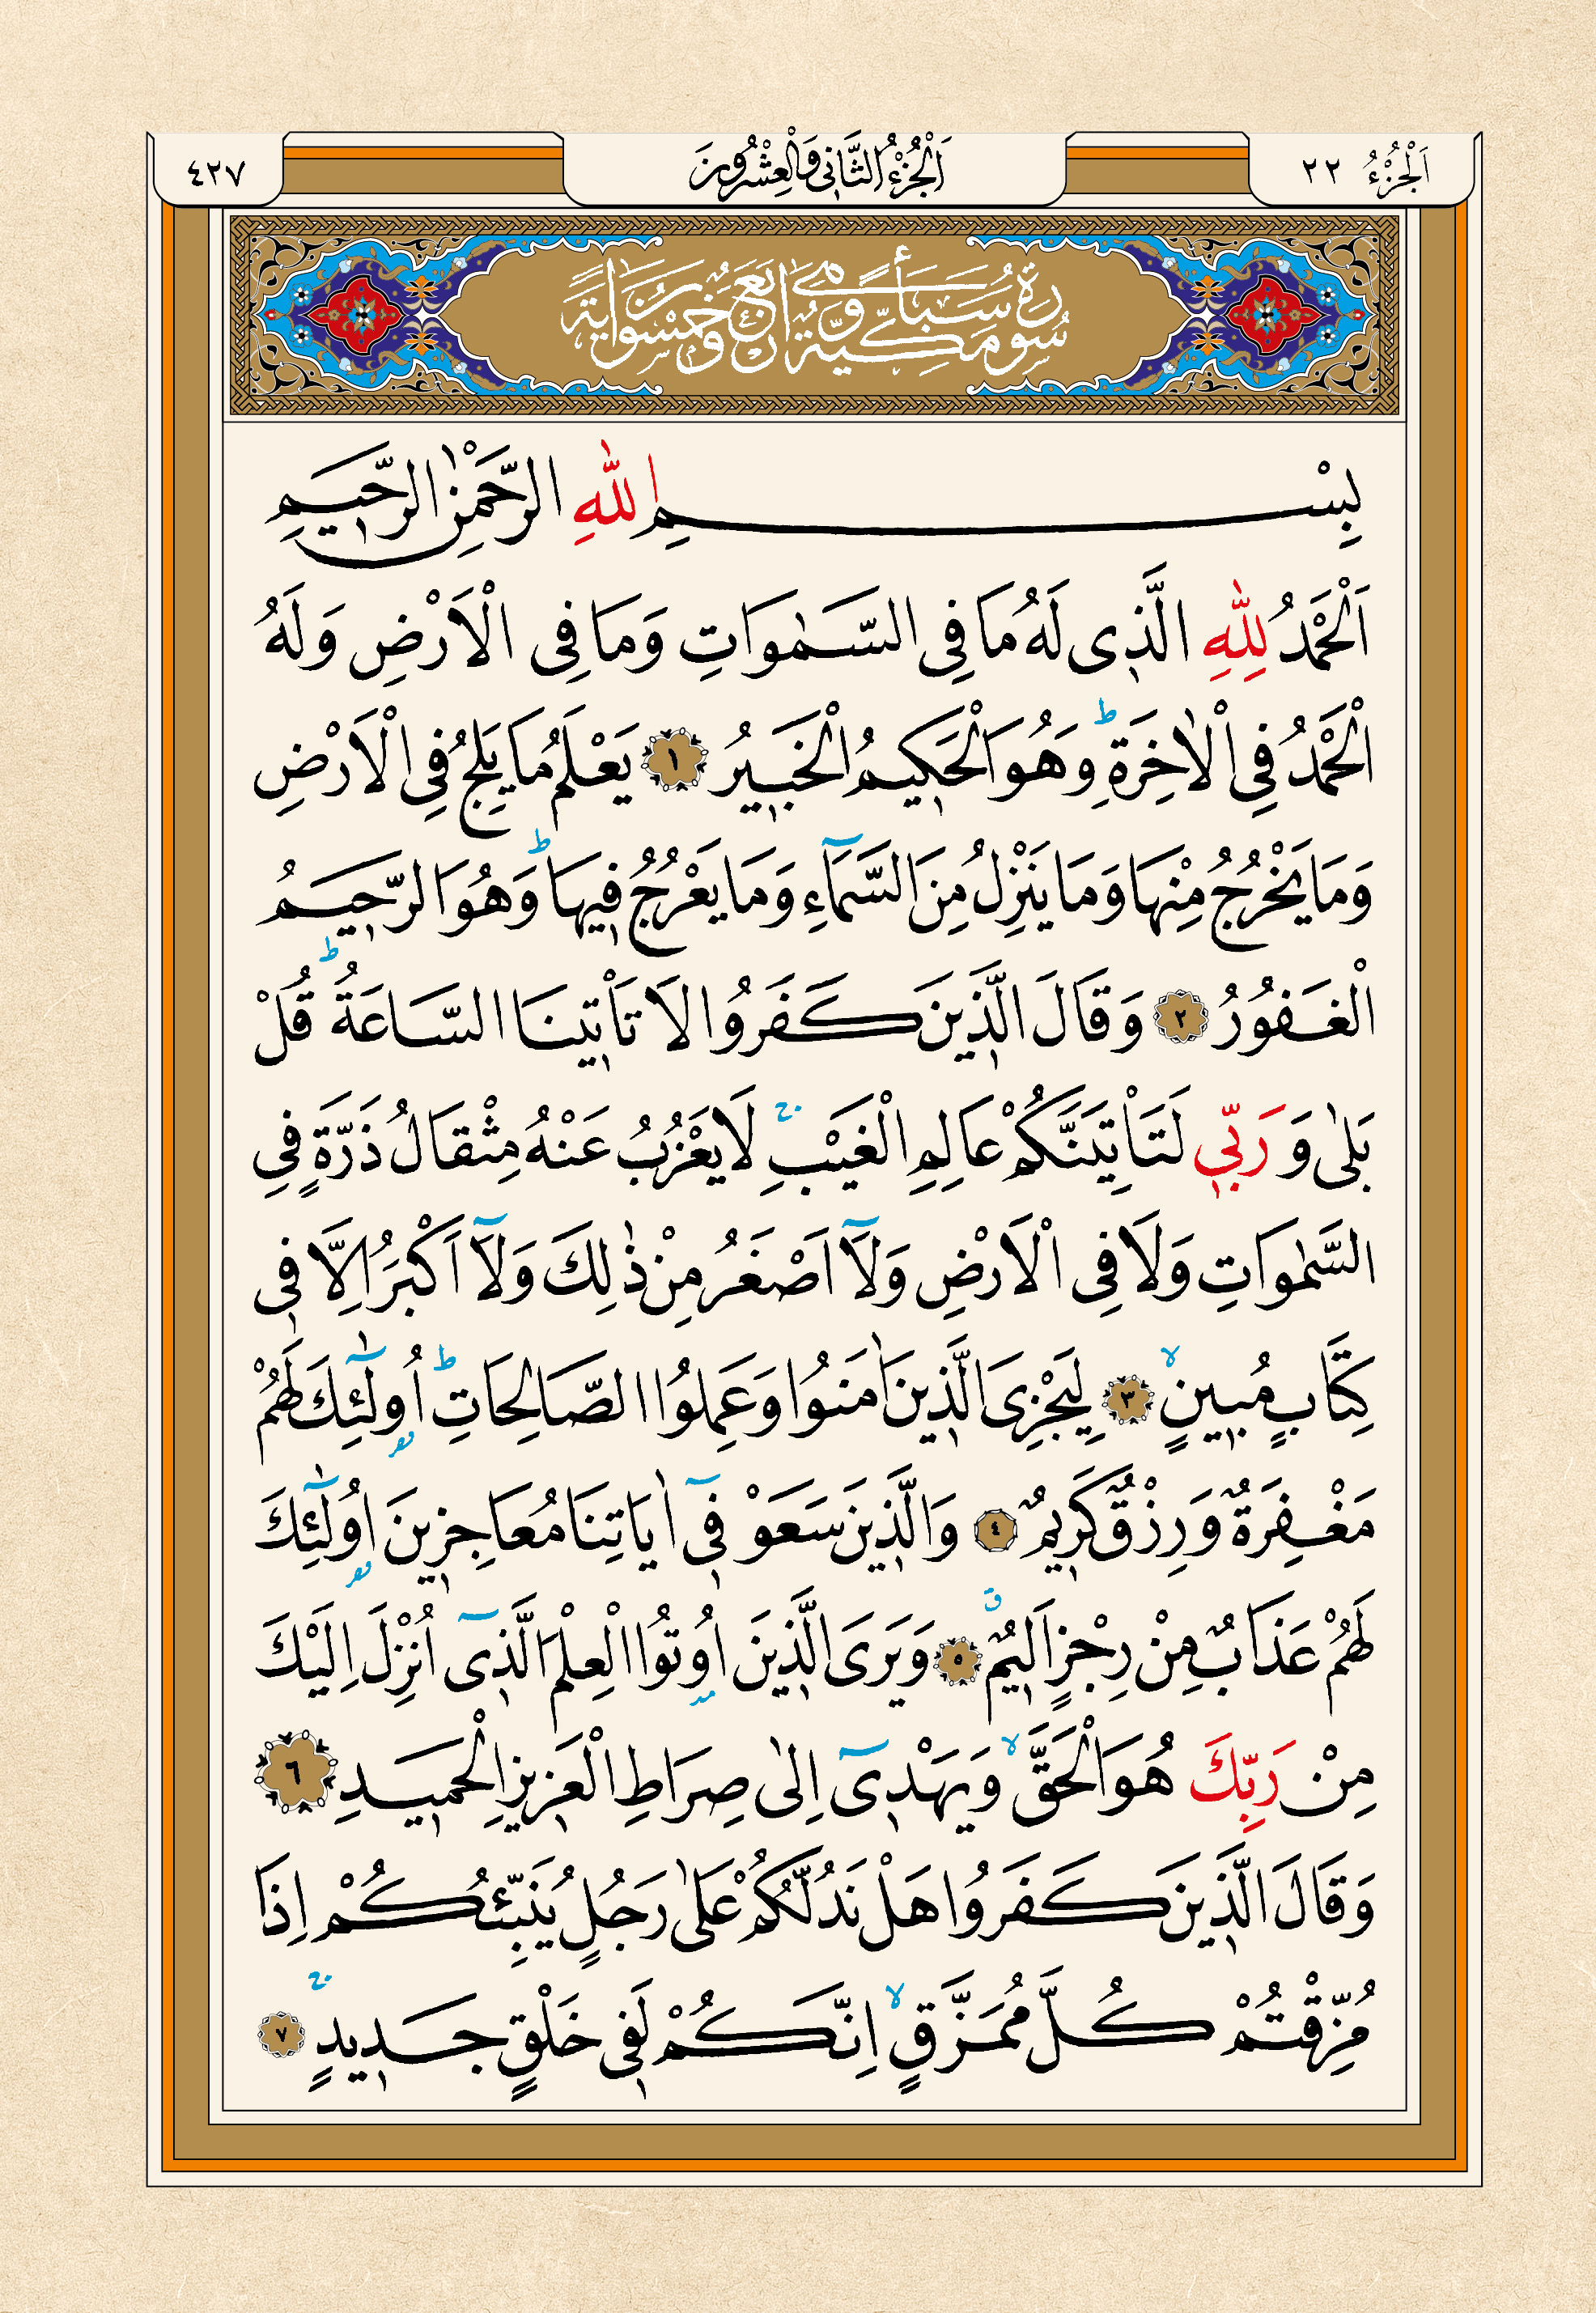 اَلْجُزْءُ ٢٢
اَلْجُزْءُ الثَّانِى وَالْعِشْرُونَ
٤٢٧
سُورَةُ سَبَأٍ مَكِّيَّةٌ وَهِىَ اَرْبَعٌ وَخَمْسُونَ اٰيَةً
بِسْمِ اللّٰهِ الرَّحْمٰنِ الرَّحِيمِ
اَلْحَمْدُ لِلّٰهِ الَّذِى لَهُ مَا فِى السَّمٰوَاتِ وَمَا فِى الْاَرْضِ وَلَهُ
الْحَمْدُ فِى الْاٰخِرَةِ ط وَهُوَ الْحَكِيمُ الْخَبِيرُ ١ يَعْلَمُ مَا يَلِجُ فِى الْاَرْضِ
وَمَا يَخْرُجُ مِنْهَا وَمَا يَنْزِلُ مِنَ السَّمَٓاءِ وَمَا يَعْرُجُ فِيهَا ط وَهُوَ الرَّحِيمُ
الْغَفُورُ ٢ وَقَالَ الَّذِينَ كَفَرُوا لَا تَأْتِينَا السَّاعَةُ ط قُلْ
بَلٰى وَرَبِّى لَتَأْتِيَنَّكُمْ عَالِمِ الْغَيْبِ ج لَا يَعْزُبُ عَنْهُ مِثْقَالُ ذَرَّةٍ فِى
السَّمٰوَاتِ وَلَا فِى الْاَرْضِ وَلَٓا اَصْغَرُ مِنْ ذٰلِكَ وَلَٓا اَكْبَرُ اِلَّا فِى
كِتَابٍ مُبِينٍ لا ٣ لِيَجْزِىَ الَّذِينَ اٰمَنُوا وَعَمِلُوا الصَّالِحَاتِ ط اُو۬لٰٓئِكَ لَهُمْ
مَغْفِرَةٌ وَرِزْقٌ كَرِيمٌ ٤ وَالَّذِينَ سَعَوْ فِٓى اٰيَاتِنَا مُعَاجِزِينَ اُو۬لٰٓئِكَ
لَهُمْ عَذَابٌ مِنْ رِجْزٍ اَلِيمٌ ق ٥ وَيَرَى الَّذِينَ اُو۫تُوا الْعِلْمَ الَّذِٓى اُنْزِلَ اِلَيْكَ
مِنْ رَبِّكَ هُوَ الْحَقَّ لا وَيَهْدِٓى اِلٰى صِرَاطِ الْعَزِيزِ الْحَمِيدِ ٦
وَقَالَ الَّذِينَ كَفَرُوا هَلْ نَدُلُّكُمْ عَلٰى رَجُلٍ يُنَبِّئُكُمْ اِذَا
مُزِّقْتُمْ كُلَّ مُمَزَّقٍ لا اِنَّكُمْ لَفِى خَلْقٍ جَدِيدٍ ج ٧